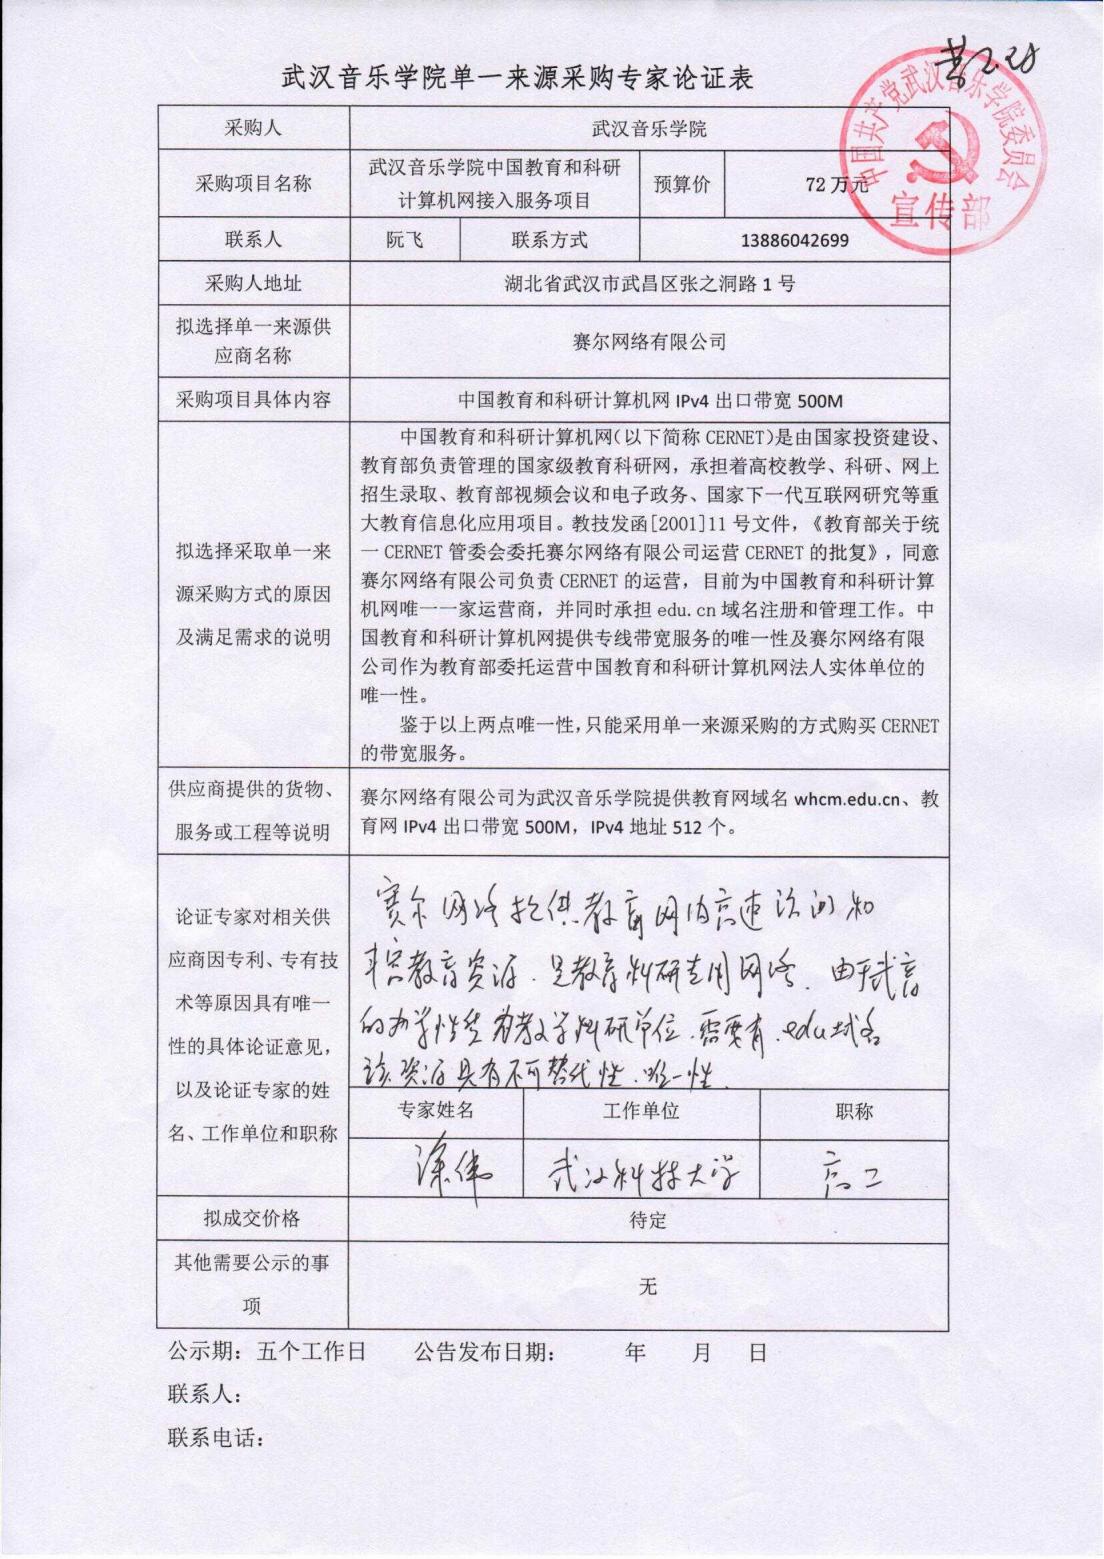 2.28
武汉音乐学院单一来源采购专家论证表
中国共产党武汉音乐学院委员会
宣传部
采购人
武汉音乐学院
采购项目名称
武汉音乐学院中国教育和科研
计算机网接入服务项目
预算价
72万元
联系人
阮飞
联系方式
13886042699
采购人地址
湖北省武汉市武昌区张之洞路1号
拟选择单一来源供
应商名称
赛尔网络有限公司
采购项目具体内容
中国教育和科研计算机网IPv4出口带宽500M
拟选择采取单一来
源采购方式的原因
及满足需求的说明
中国教育和科研计算机网(以下简称CERNET)是由国家投资建设、
教育部负责管理的国家级教育科研网，承担着高校教学、科研、网上
招生录取、教育部视频会议和电子政务、国家下一代互联网研究等重
大教育信息化应用项目。教技发函[2001]11号文件，《教育部关于统
一CERNET管委会委托赛尔网络有限公司运营CERNET的批复》，同意
赛尔网络有限公司负责CERNET的运营，目前为中国教育和科研计算
机网唯一一家运营商，并同时承担edu.cn域名注册和管理工作。中
国教育和科研计算机网提供专线带宽服务的唯一性及赛尔网络有限
公司作为教育部委托运营中国教育和科研计算机网法人实体单位的
唯一性。
鉴于以上两点唯一性，只能采用单一来源采购的方式购买CERNET
的带宽服务。
供应商提供的货物、
服务或工程等说明
赛尔网络有限公司为武汉音乐学院提供教育网域名whcm.edu.cn、教
育网IPv4出口带宽500M，IPv4地址512个。
论证专家对相关供
应商因专利、专有技
术等原因具有唯一
性的具体论证意见，
以及论证专家的姓
名、工作单位和职称
赛尔网络提供教育网内高速访问和
丰富教育资源.是教育科研专用网络.由于武音
的办学性质为教学科研单位.需要有.edu域名
该资源具有不可替代性.唯一性.
专家姓名
工作单位
职称
涂伟
武汉科技大学
高工
拟成交价格
待定
其他需要公示的事
项
无
公示期：五个工作日 公告发布日期： 年 月 日
联系人：
联系电话：